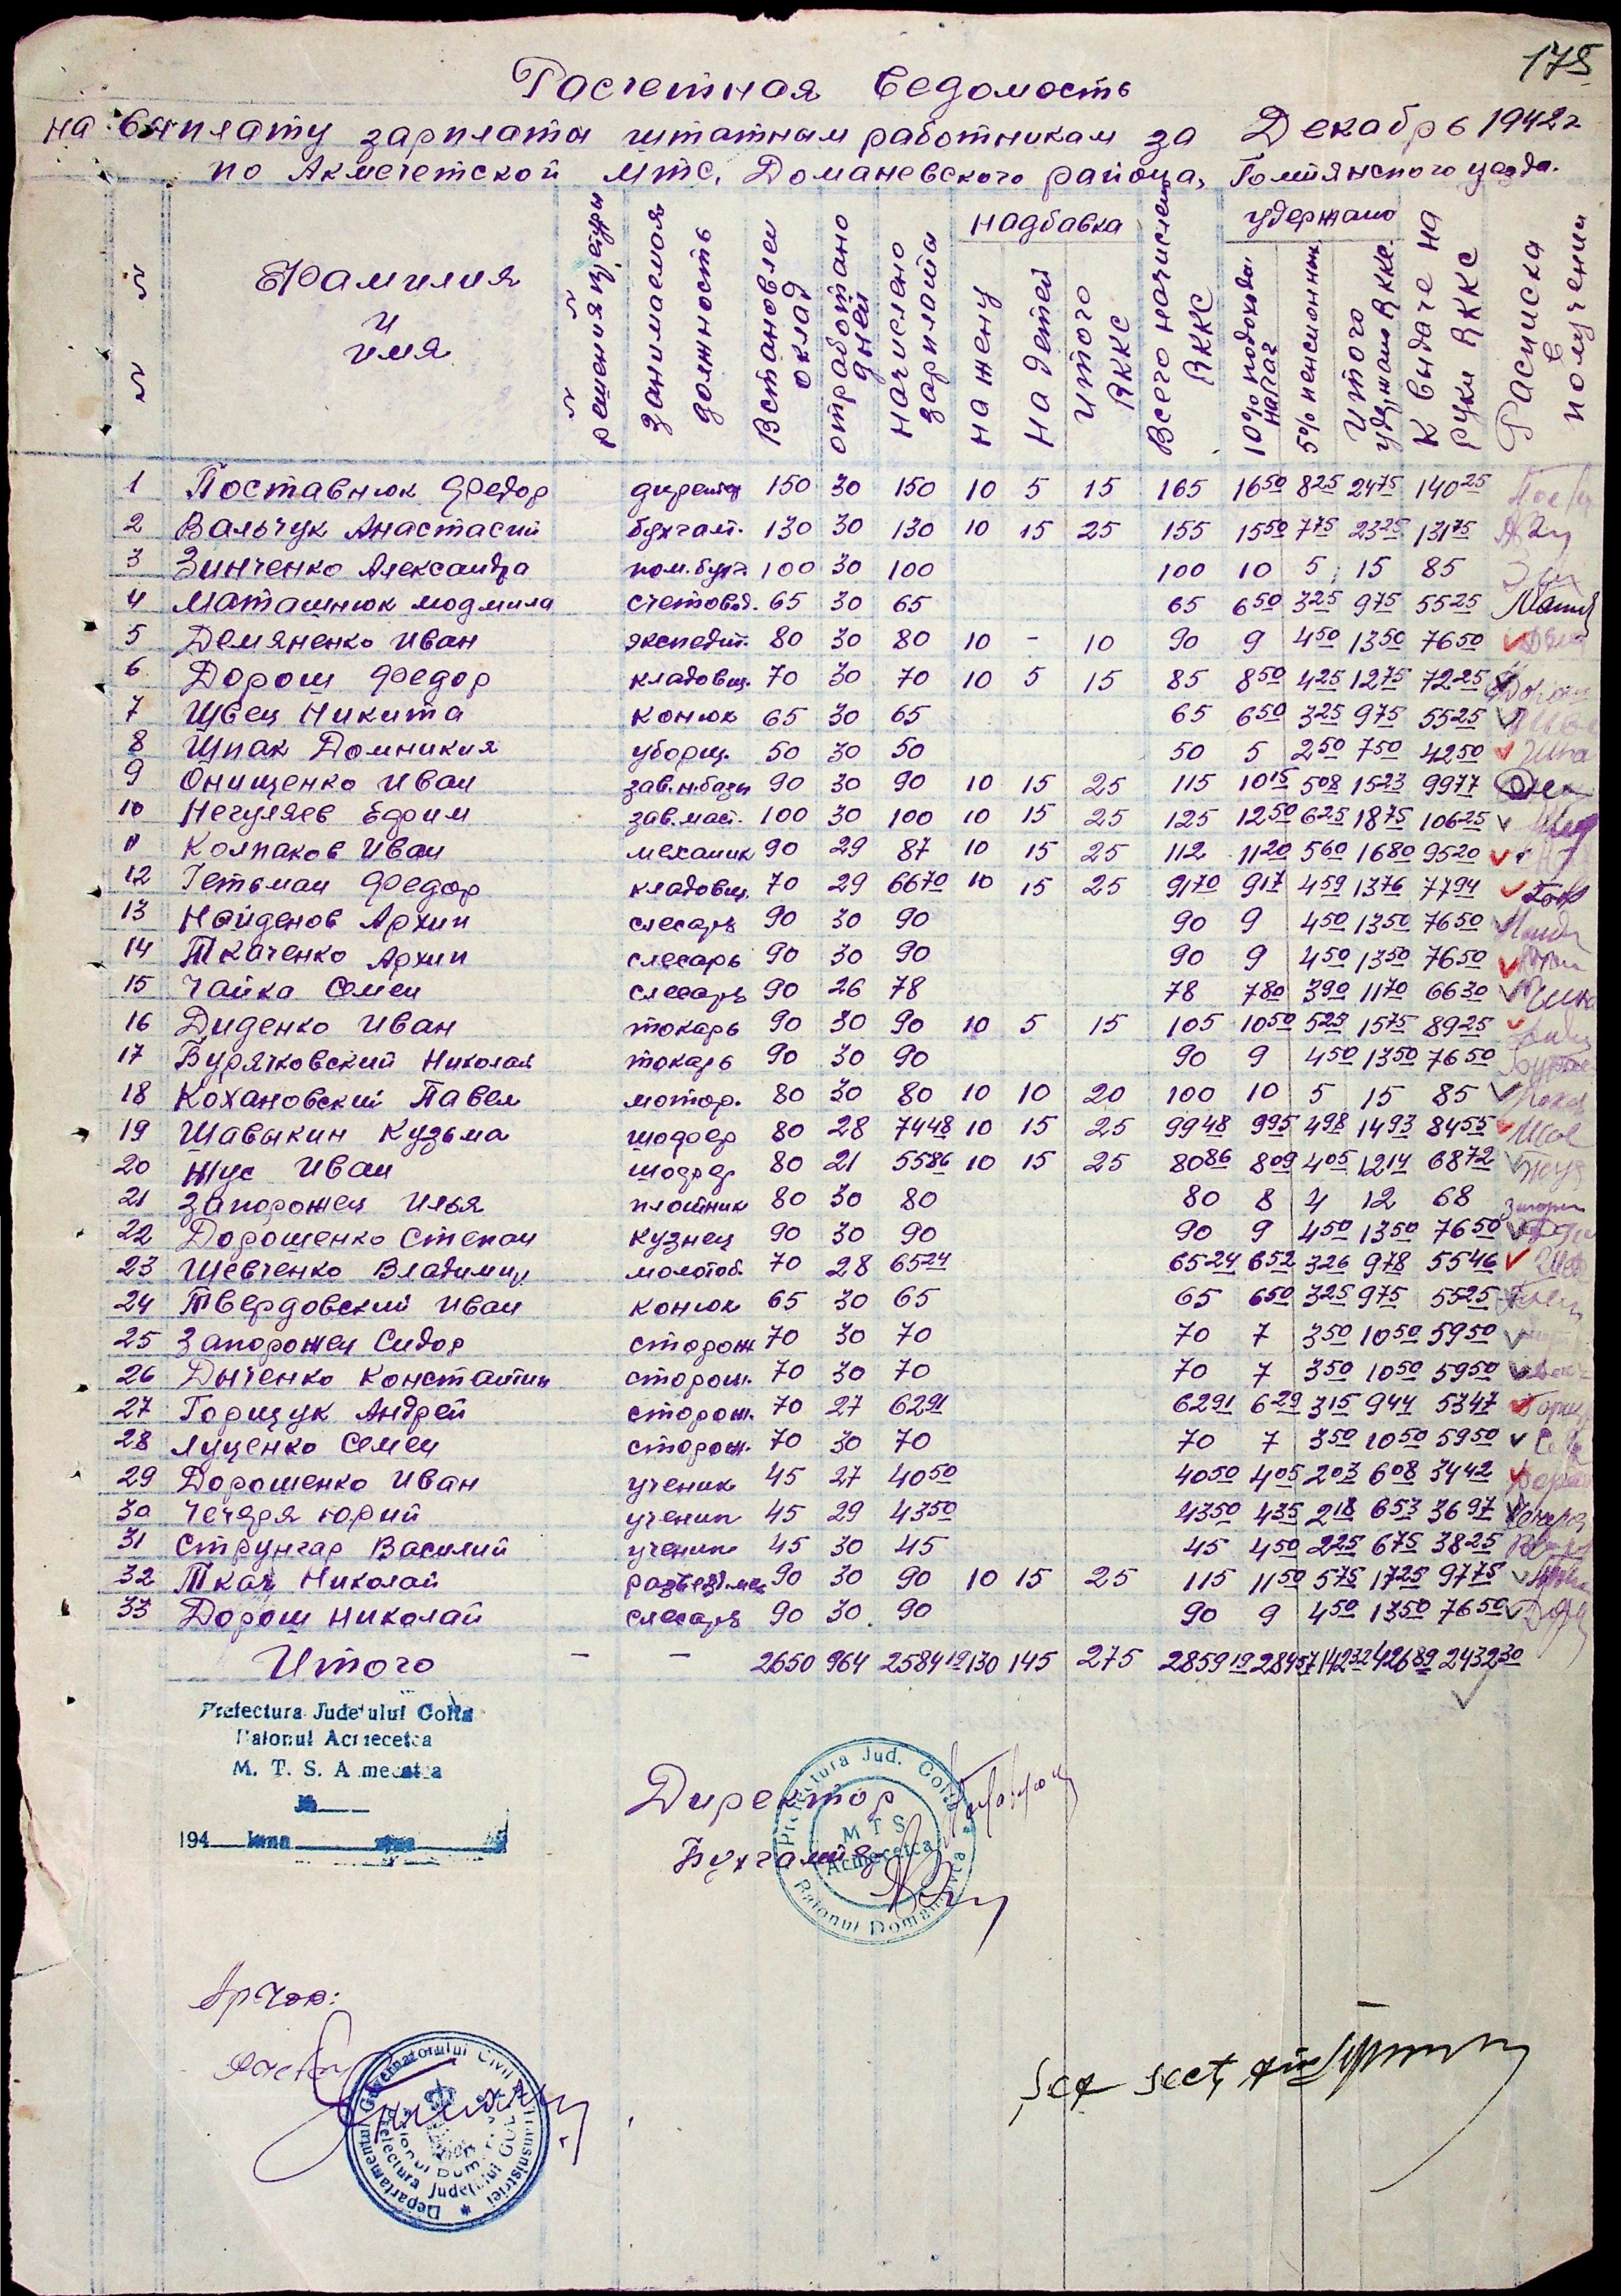 175
Расчетная Ведомость
на выплату зарплаты штатным работникам за Декабрь 1942г
по Акмечетской МТС, Доманевского района, Голтянского уезда.
№ №
Фамилия и имя
№ № решения префектуры
занимаемая должность
Встановлен оклад
отработано дней
начислено зарплаты
надбавка
на жену
на детей
итого RKKC
Всего начислено RKKC
удержано
10% подоходн. налог
5% пенсионных
итого удержано RKKC
К выдаче на руки RKKC
Расписка в получении
1 Поставнюк Федор директор 150 30 150 10 5 15 165 16 50 8 25 24 75 140 25
2 Вальчук Анастасий бухгалт. 130 30 130 10 15 25 155 15 50 7 75 23 25 131 75
3 Зинченко Александра пом.бухг. 100 30 100 100 10 5 15 85
4 Маташнюк Людмила счетовод. 65 30 65 65 6 50 3 25 9 75 55 25
5 Демяненко Иван экспедит. 80 30 80 10 - 10 90 9 4 50 13 50 76 50
6 Дорош Федор кладовщ. 70 30 70 10 5 15 85 8 50 4 25 12 75 72 25
7 Швец Никита конюх 65 30 65 65 6 50 3 25 9 75 55 25
8 Шпак Домникия уборщ. 50 30 50 50 5 2 50 7 50 42 50
9 Онищенко Иван зав.н.базы 90 30 90 10 15 25 115 10 15 5 08 15 23 99 77
10 Негуляев Ефрим зав.маст. 100 30 100 10 15 25 125 12 50 6 25 18 75 106 25
11 Колпаков Иван механик 90 29 87 10 15 25 112 11 20 5 60 16 80 95 20
12 Гетьман Федор кладовщ. 70 29 66 70 10 15 25 91 70 9 17 4 59 13 76 77 94
13 Найденов Архип слесарь 90 30 90 90 9 4 50 13 50 76 50
14 Ткаченко Архип слесарь 90 30 90 90 9 4 50 13 50 76 50
15 Чайка Семен слесарь 90 26 78 78 7 80 3 90 11 70 66 30
16 Диденко Иван токарь 90 30 90 10 5 15 105 10 50 5 25 15 75 89 25
17 Бурячковский Николай токарь 90 30 90 90 9 4 50 13 50 76 50
18 Кохановский Павел мотор. 80 30 80 10 10 20 100 10 5 15 85
19 Шавыкин Кузьма шофер 80 28 74 48 10 15 25 99 48 9 95 4 98 14 93 84 55
20 Жус Иван шофер 80 21 55 86 10 15 25 80 86 8 09 4 05 12 14 68 72
21 Запорожец Илья плотник 80 30 80 80 8 4 12 68
22 Дорошенко Степан кузнец 90 30 90 90 9 4 50 13 50 76 50
23 Шевченко Владимир молотоб. 70 28 65 24 65 24 6 52 3 26 9 78 55 46
24 Твердовский Иван конюх 65 30 65 65 6 50 3 25 9 75 55 25
25 Запорожец Сидор сторож 70 30 70 70 7 3 50 10 50 59 50
26 Дыченко Константин сторож. 70 30 70 70 7 3 50 10 50 59 50
27 Горщук Андрей сторож. 70 27 62 91 62 91 6 29 3 15 9 44 53 47
28 Луценко Семен сторож. 70 30 70 70 7 3 50 10 50 59 50
29 Дорошенко Иван ученик 45 27 40 50 40 50 4 05 2 03 6 08 34 42
30 Чечеря Юрий ученик 45 29 43 50 43 50 4 35 2 18 6 53 36 97
31 Струнгар Василий ученик 45 30 45 45 4 50 2 25 6 75 38 25
32 Ткач Николай разъезд.мех 90 30 90 10 15 25 115 11 50 5 75 17 25 97 75
33 Дорош Николай слесарь 90 30 90 90 9 4 50 13 50 76 50
Итого - - 2650 964 2584 19 130 145 275 2859 19 284 57 142 32 426 89 2432 30
Prefectura Județului Golta
Raionul Acmecetca
M. T. S. Acmecetca
№
194 luna ziua
Директор
Бухгалтер
Prefectura Jud. Golta
Raionul Domanovca
M T S
Acmecetca
Departamentul Guvernatorului Civil al Transnistriei
Prefectura Județului